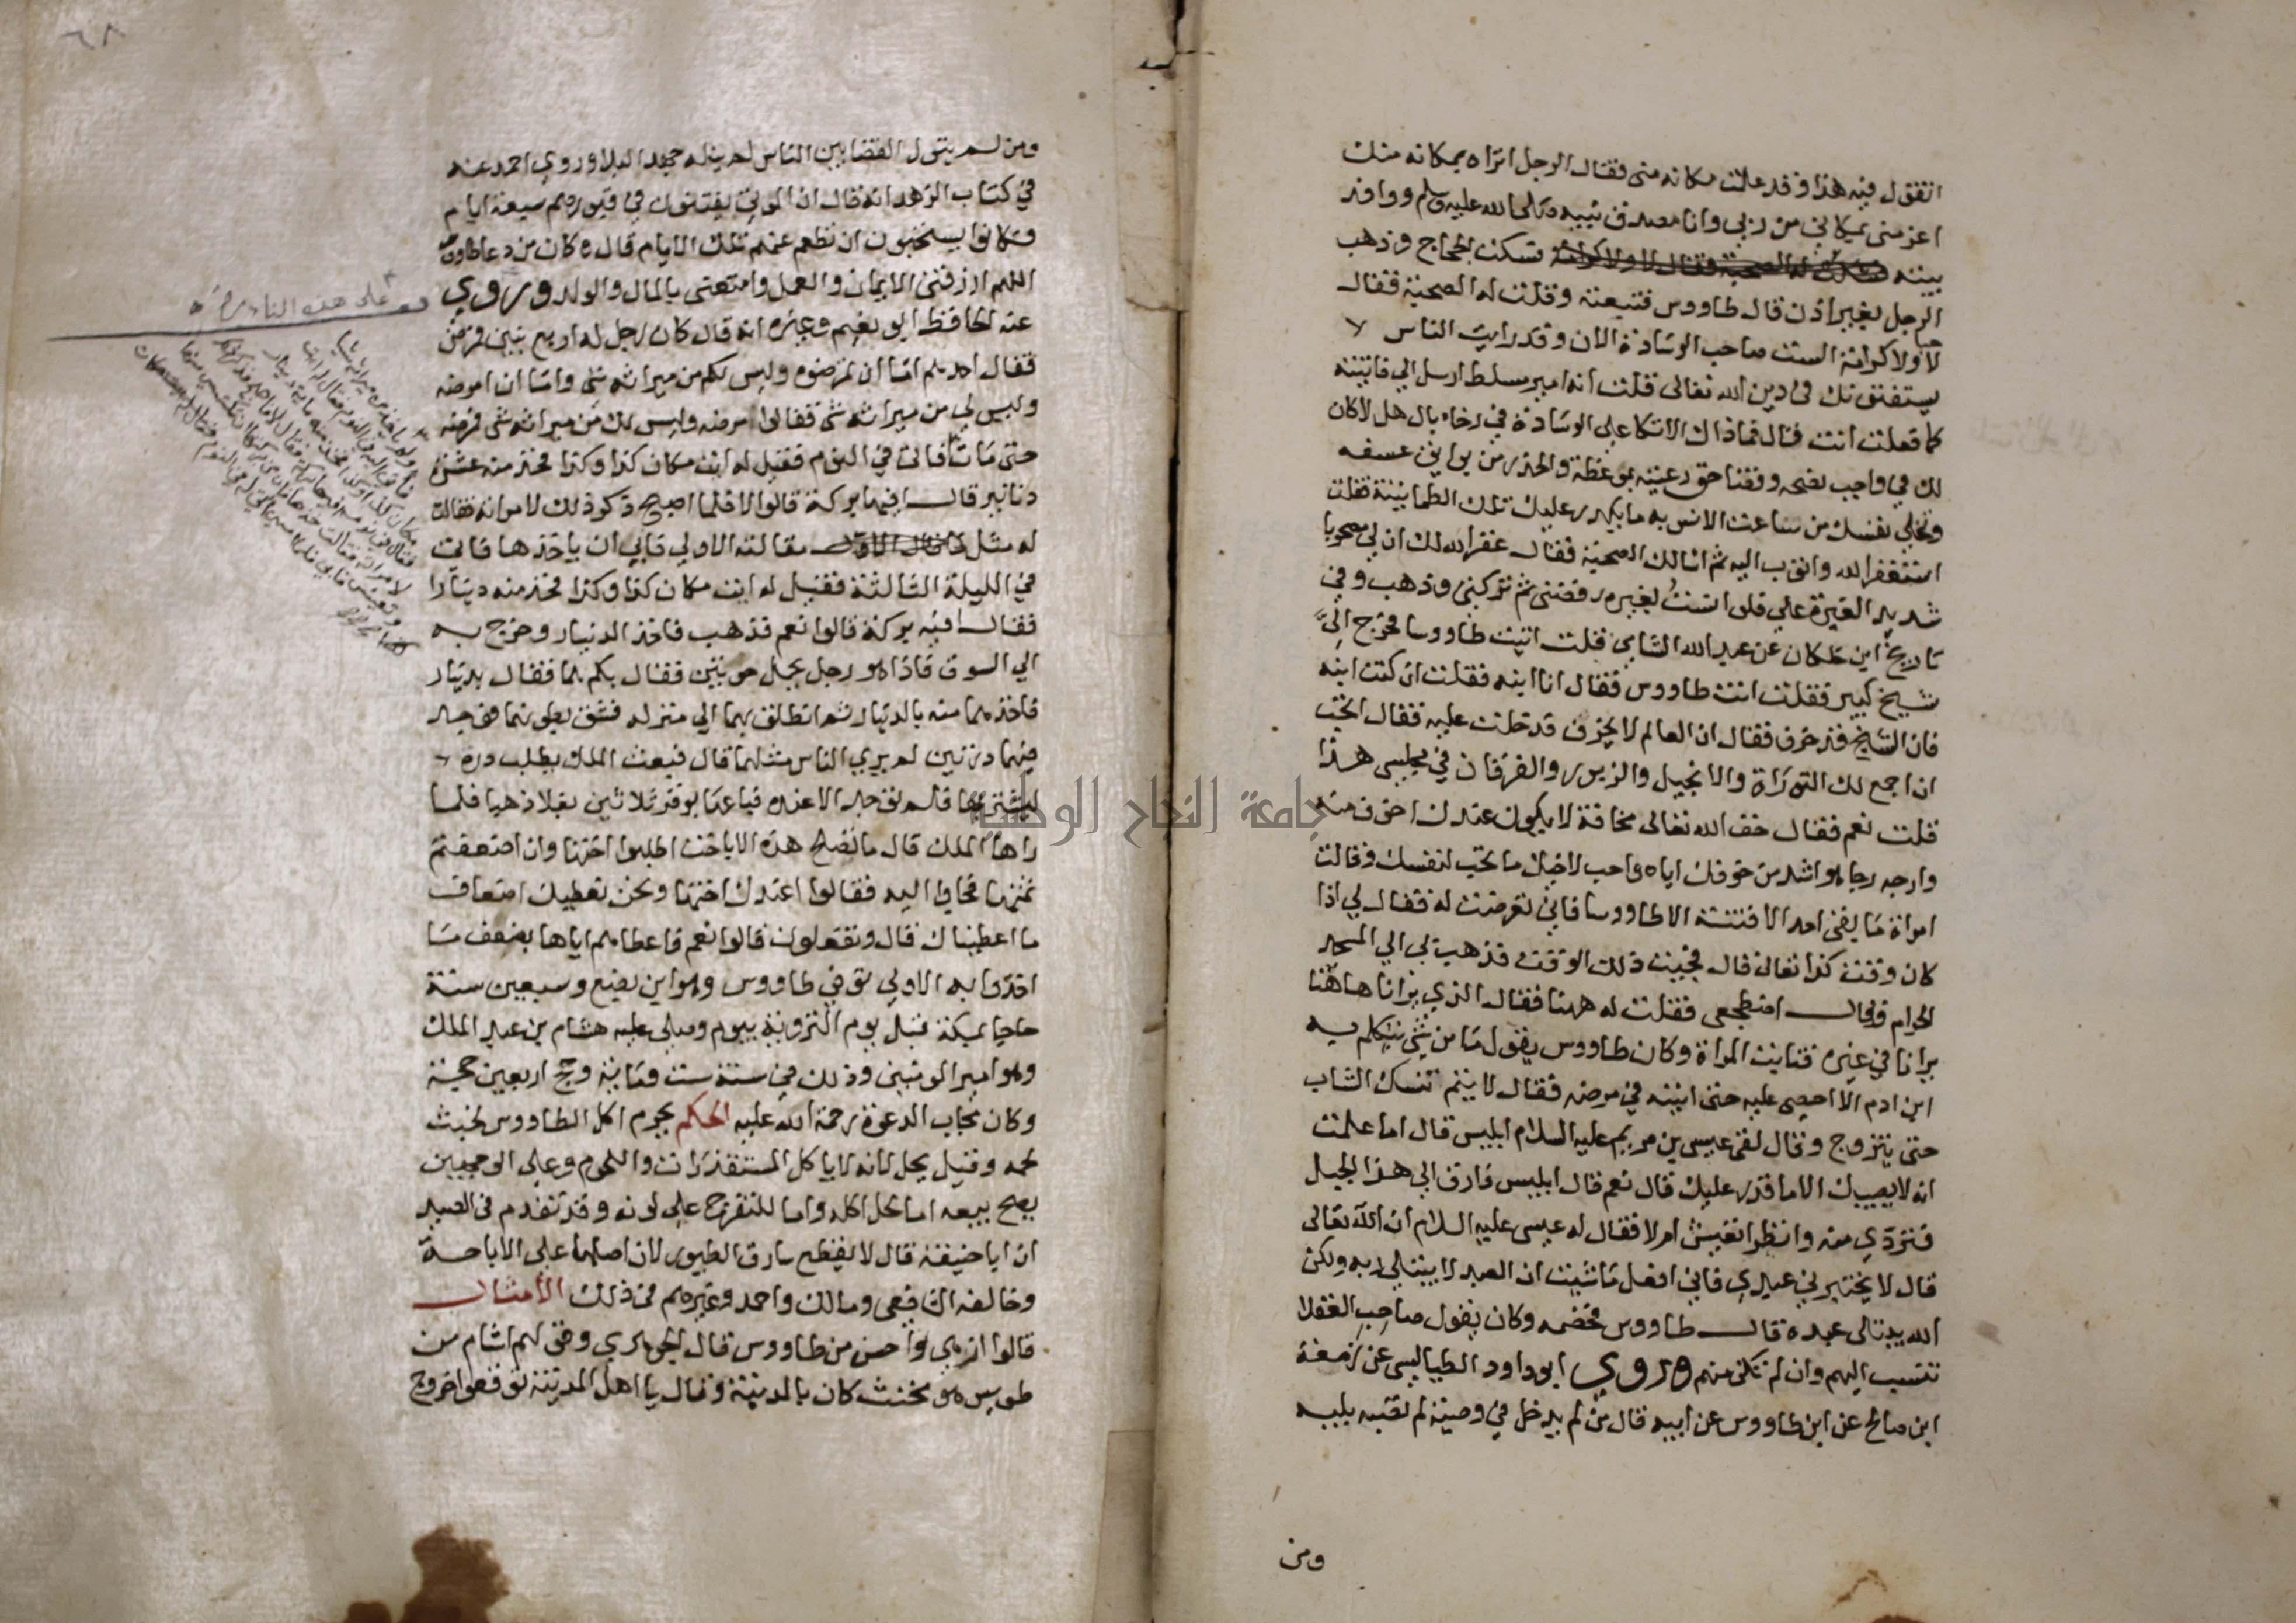 اتقول فيه هذا وقد علمت مكانه مني فقال الرجل اتراه بمكانه منك
اعز مني بمكاني من ربي وانا مصدق نبيه صلى الله عليه وسلم ووافد
بيته فسكت الحجاج وذهب
الرجل بغير اذن قال طاووس فتبعته وقلت له الصحبة فقال
لا حبا ولا كرامة الست صاحب الوسادة الان وقد رايت الناس
يستفتونك في دين الله تعالى قلت انه امير مسلط ارسل الي فاتيته
كما فعلت انت قال فما ذاك الاتكا على الوسادة في رخاء بال هل لا كان
لك في واجب نصحه وقضا حق رعيته بموعظة والحذر من بوايق عسفه
وتخلي نفسك من ساعت الانس به ما يكدر عليك تلك الطمانينة فقلت
استغفر الله واتوب اليه ثم اسالك الصحبة فقال غفر الله لك ان لي مصحوبا
شديد الغيرة علي فلو انست بغيره رفضني ثم تركني وذهب وفي
تاريخ ابن خلكان عن عبد الله الشامي قلت اتيت طاووسا فخرج الي
شيخ كبير فقلت انت طاووس فقال انا ابنه فقلت ان كنت ابنه
فان الشيخ قد خرف فقال ان العالم لا يخرف فدخلت عليه فقال اتحب
ان اجمع لك التوراة والانجيل والزبور والفرقان في مجلسي هذا
قلت نعم فقال خف الله تعالى مخافة لا يكون عندك اخوف منه
وارجه رجا هو اشد من خوفك اياه واحب لاخيك ما تحب لنفسك وقالت
امراة ما بقي احد الا فتنته الا طاووسا فاني تعرضت له فقال لي اذا
كان وقت كذا تعالي قال فجيت ذلك الوقت فذهب بي الى المسجد
الحرام وقال اضطجعي فقلت له ههنا فقال الذي يرانا هاهنا
يرانا في غيره فتابت المراة وكان طاووس يقول ما من شي يتكلم به
ابن ادم الا احصى عليه حتى انينه في مرضه فقال لا يتم نسك الشاب
حتى يتزوج وقال لقي عيسى بن مريم عليه السلام ابليس قال اما علمت
انه لا يصيبك الا ما قدر عليك قال نعم قال ابليس فارق الى هذا الجبل
فتردي منه وانظر اتعيش ام لا فقال له عيسى عليه السلام ان الله تعالى
قال لا يختبرني عبدي فاني افعل ما شيت ان العبد لا يبتلي ربه ولكن
الله يبتلي عبده قال طاووس فخصمه وكان يقول صاحب العقلا
تنسب اليهم وان لم تكن منهم وروي ابو داود الطيالسي عن زمعة
ابن صالح عن ابن طاووس عن ابيه قال من لم يدخل في وصية لم تصبه بليه
ومن
٦٨
ومن لم يتول القضا بين الناس لم ينله جهد البلا وروي احمد عنه
في كتاب الزهد انه قال ان الموتى يفتنون في قبورهم سبعة ايام
فكانوا يستحبون ان نطعم عنهم تلك الايام قال وكان من دعا طاووس
اللهم ارزقني الايمان والعمل وامتعني بالمال والولد وروي
عنه الحافظ ابو نعيم وغيره انه قال كان رجل له اربع بنين فمرض
فقال احدهم اما ان تمرضوه وليس لكم من ميراثه شي واما ان امرضه
وليس لي من ميراثه شي فقالوا امرضه وليس لك من ميراثه شي فمرضه
حتى مات فاتي في النوم فقيل له ايت مكان كذا وكذا فخذ منه عشرة
دنانير قال افيها بركة قالوا لا فلما اصبح ذكر ذلك لامراته فقالت
له مثل مقالته الاولي فابي ان ياخذها فاتي
في الليلة الثالثة فقيل له ايت مكان كذا وكذا فخذ منه دينارا
فقال افيه بركة قالوا نعم فذهب فاخذ الدينار وخرج به
الى السوق فاذا هو رجل يحمل حوتين فقال بكم هما فقال بدينار
فاخذهما منه بالدينار ثم انطلق بهما الى منزله فشق بطونهما فوجد
فيهما درتين لم يري الناس مثلهما قال فبعث الملك يطلب درة
ليشتريها فلم توجد الا عنده فباعها بوقر ثلاثين بغلا ذهبا فلما
راها الملك قال ما تصلح هذه الا باخت اطلبوا اختها وان اضعفتم
ثمنها فجاوا اليه فقالوا اعندك اختها ونحن نعطيك اضعاف
ما اعطيناك قال وتفعلون قالوا نعم فاعطاهم اياها بضعف ما
اخذوا به الاولى توفي طاووس وهو ابن بضع وسبعين سنة
حاجا بمكة قبل يوم التروية بيوم وصلى عليه هشام بن عبد الملك
وهو امير المومنين وذلك في سنة ست وماية وحج اربعين حجة
وكان مجاب الدعوة رحمة الله عليه الحكم يحرم اكل الطاووس لخبث
لحمه وقيل يحل لانه لا ياكل المستقذرات واللحوم وعلى الوجهين
يصح بيعه اما لحل اكله واما للتفرج على لونه وقد تقدم في الصيد
ان ابا حنيفة قال لا يقطع سارق الطيور لان اصلها على الاباحة
وخالفه الشافعي ومالك واحمد وغيرهم في ذلك الأمثال
قالوا ازهي واحسن من طاووس قال الجوهري وقولهم اشام من
طويس هو مخنث كان بالمدينة وقال يا اهل المدينة توقعوا خروج
جامعة النجاح الوطنية